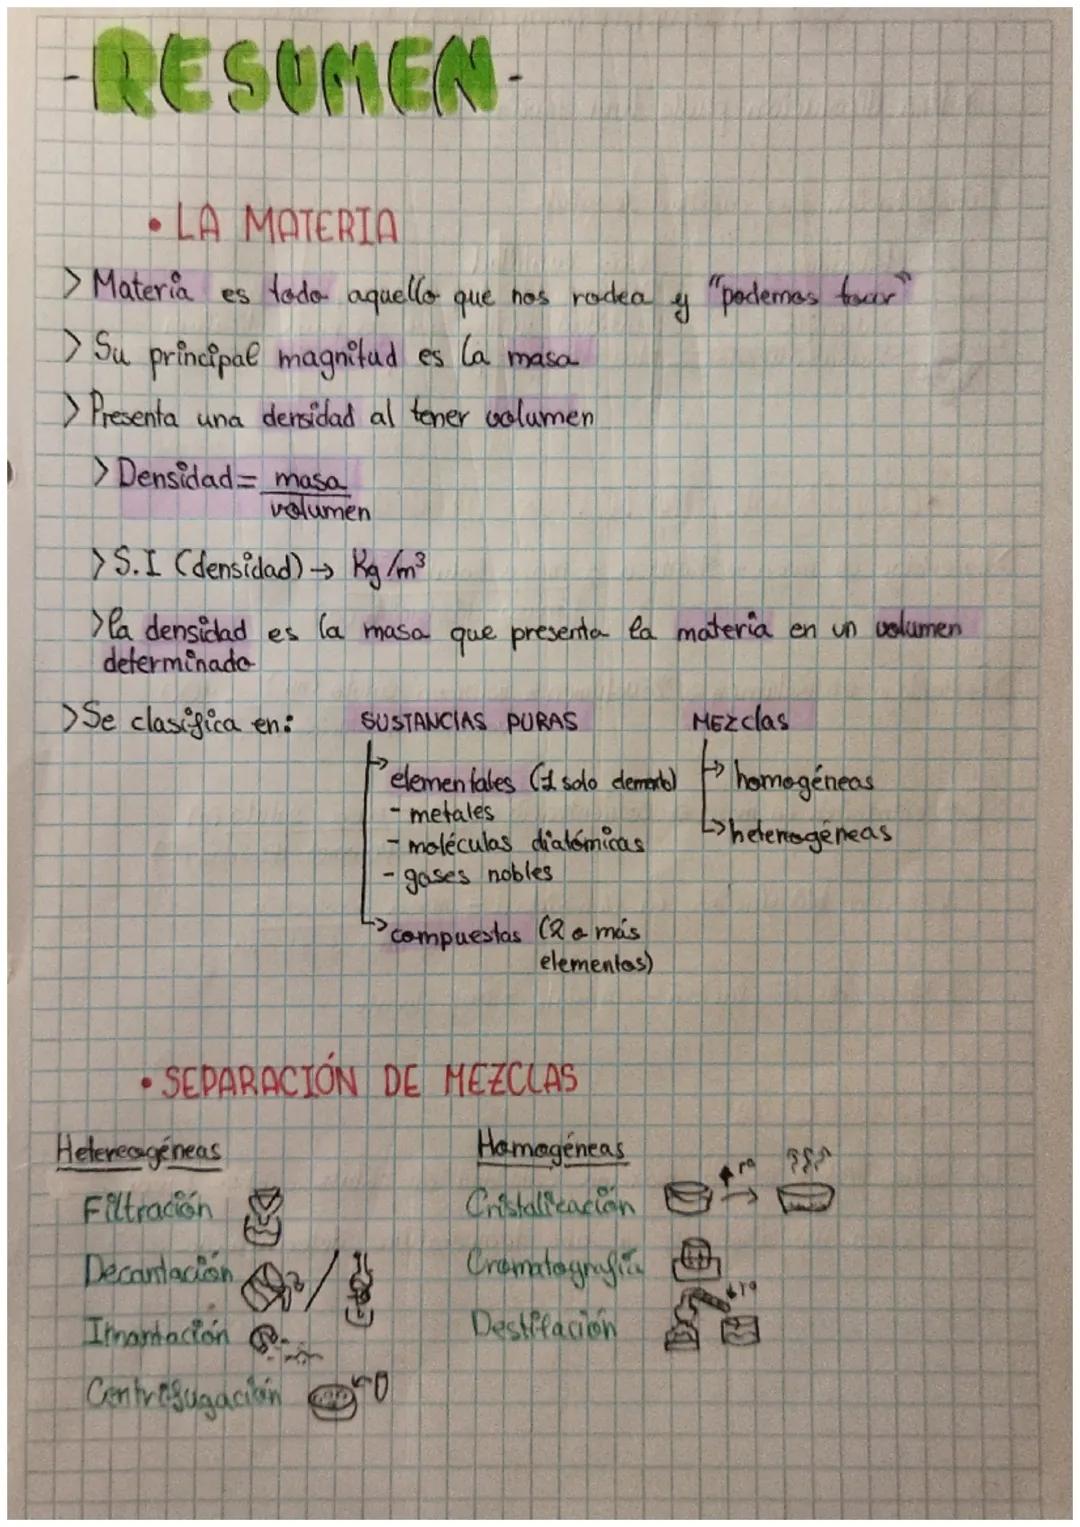 -RESUMEN-
• LA MATERIA
> Materia es todo aquello que nos rodea y "podemos tocar"
> Su principal magnitud es la masa
> Presenta una densidad al tener volumen
> Densidad = masa
volumen
> S.I (densidad) → Kg/m³
> la densidad es la masa que presenta la materia en un volumen
determinado
> Se clasifica en: SUSTANCIAS PURAS MEZclas
→ elementales (1 solo elemento) → homogéneas
- metales
- moléculas diatómicas → heterogéneas
- gases nobles
→ compuestas (2 o más
elementos)
• SEPARACIÓN DE MEZCLAS
Heterogéneas Homogéneas
Filtración Cristalización ↑ rª
Decantación Cromatografía
Imantación Destilación ↓ rª
Centrifugación